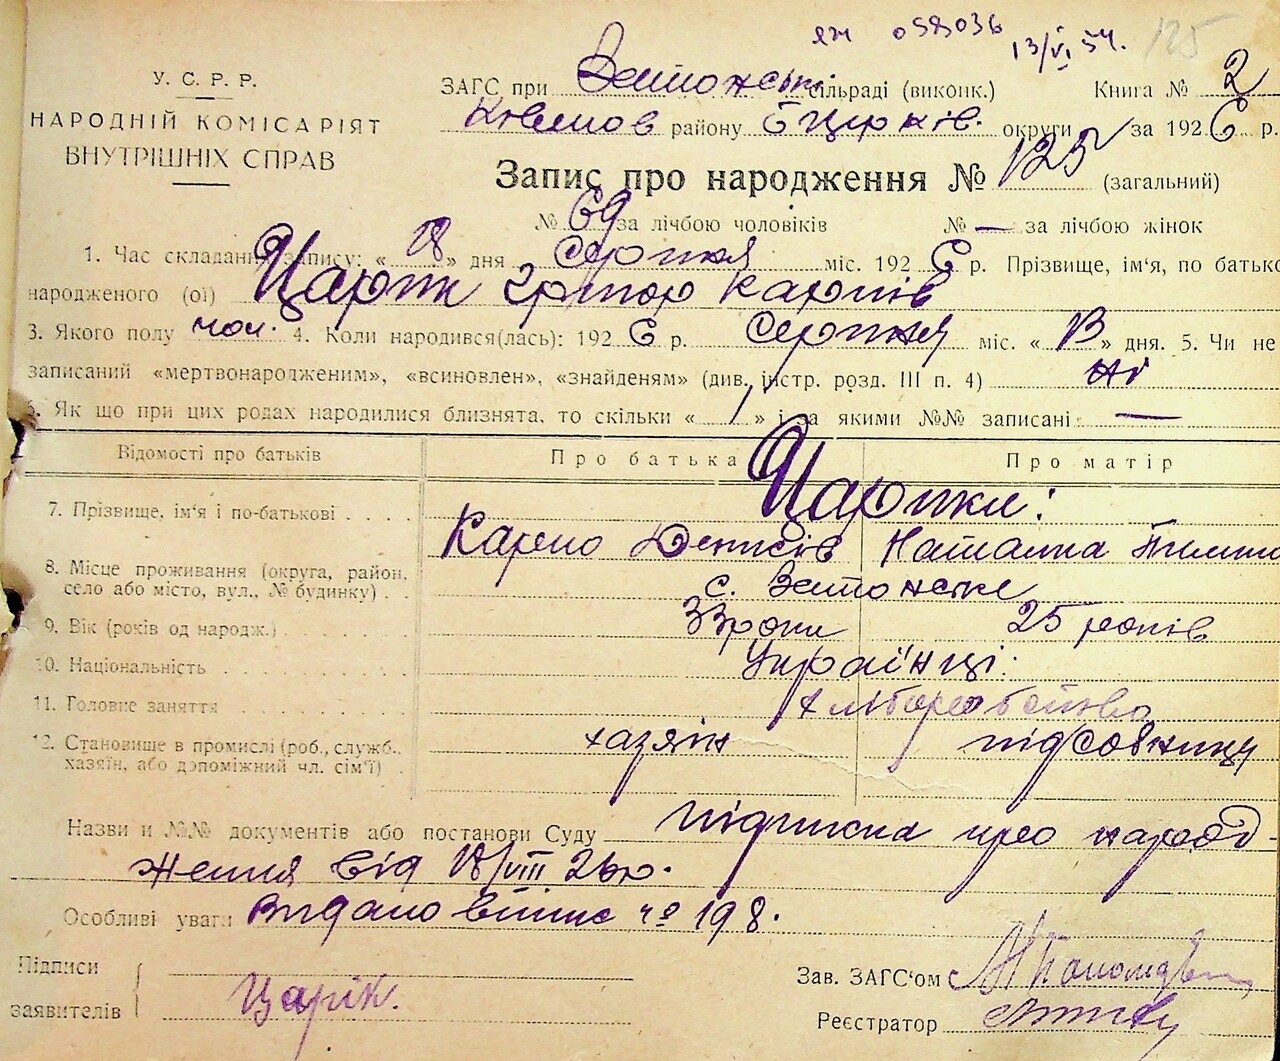 ЯЖ 058036 13/VI 54. 125
У. С. Р. Р.
НАРОДНІЙ КОМІСАРІЯТ
ВНУТРІШНІХ СПРАВ
ЗАГС при сільраді (виконк.) Книга № 2
району Бцерків. округи за 1926 р.
Запис про народження № 125 (загальний)
№ 69 за лічбою чоловіків № — за лічбою жінок
1. Час складання запису: « 18 » дня Серпня міс. 1926 р. Прізвище, ім'я, по батько
народженого (ої) Карпів
3. Якого полу чол. 4. Коли народився(лась): 1926 р. Серпня міс. « 13 » дня. 5. Чи не
записаний «мертвонародженим», «всиновлен», «знайденям» (див. інстр. розд. III п. 4) ні
6. Як що при цих родах народилися близнята, то скільки « / » і за якими №№ записані —
Відомості про батьків Про батька Про матір
7. Прізвище, ім'я і по-батькові
Карпо Денисів Наталка
8. Місце проживання (округа, район, село або місто, вул., № будинку) с.
9. Вік (років од народж.) 33 роки 25 років
10. Національність Українці.
11. Головне заняття Хліборобство
12. Становище в промислі (роб., служб., хазяїн, або допоміжний чл. сім'ї) хазяїн
Назви и №№ документів або постанови Суду підписка про народ-
ження від 18/VIII 26р.
Особливі уваги Видано витяг № 198.
Підписи
заявителів Царік.
Зав. ЗАГС'ом
Реєстратор